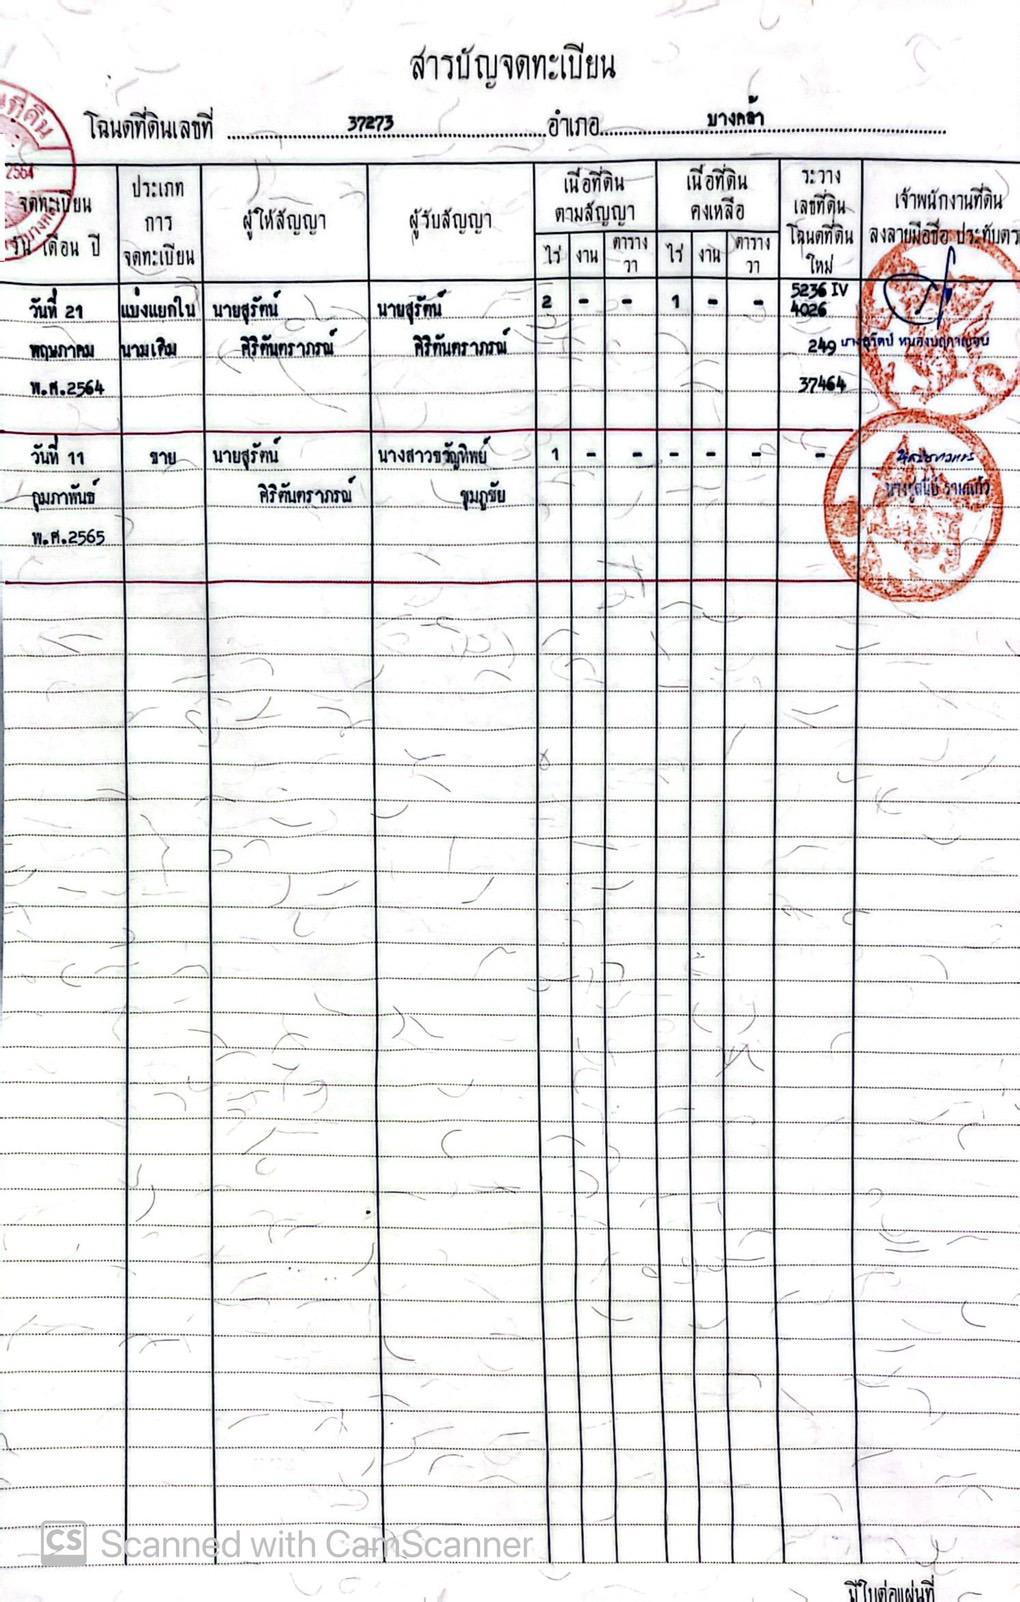 สารบัญจดทะเบียน
โฉนดที่ดินเลขที่ 37273 อำเภอ บางคล้า
จดทะเบียน วัน เดือน ปี
ประเภท การ จดทะเบียน
ผู้ให้สัญญา
ผู้รับสัญญา
เนื้อที่ดิน ตามสัญญา
ไร่ งาน ตาราง วา
เนื้อที่ดิน คงเหลือ
ไร่ งาน ตาราง วา
ระวาง เลขที่ดิน โฉนดที่ดิน ใหม่
เจ้าพนักงานที่ดิน ลงลายมือชื่อ ประทับตรา
วันที่ 21 แบ่งแยกใน นายสุรัตน์ นายสุรัตน์ 2 - - 1 - - 5236 IV
4026
พฤษภาคม นามเดิม ศิริตันตราภรณ์ ศิริตันตราภรณ์ 249
พ.ศ.2564 37464
วันที่ 11 ขาย นายสุรัตน์ นางสาวขวัญทิพย์ 1 - - - - - -
กุมภาพันธ์ ศิริตันตราภรณ์ ชุมภูชัย
พ.ศ.2565
2564
CS Scanned with CamScanner
มีใบต่อแผ่นที่